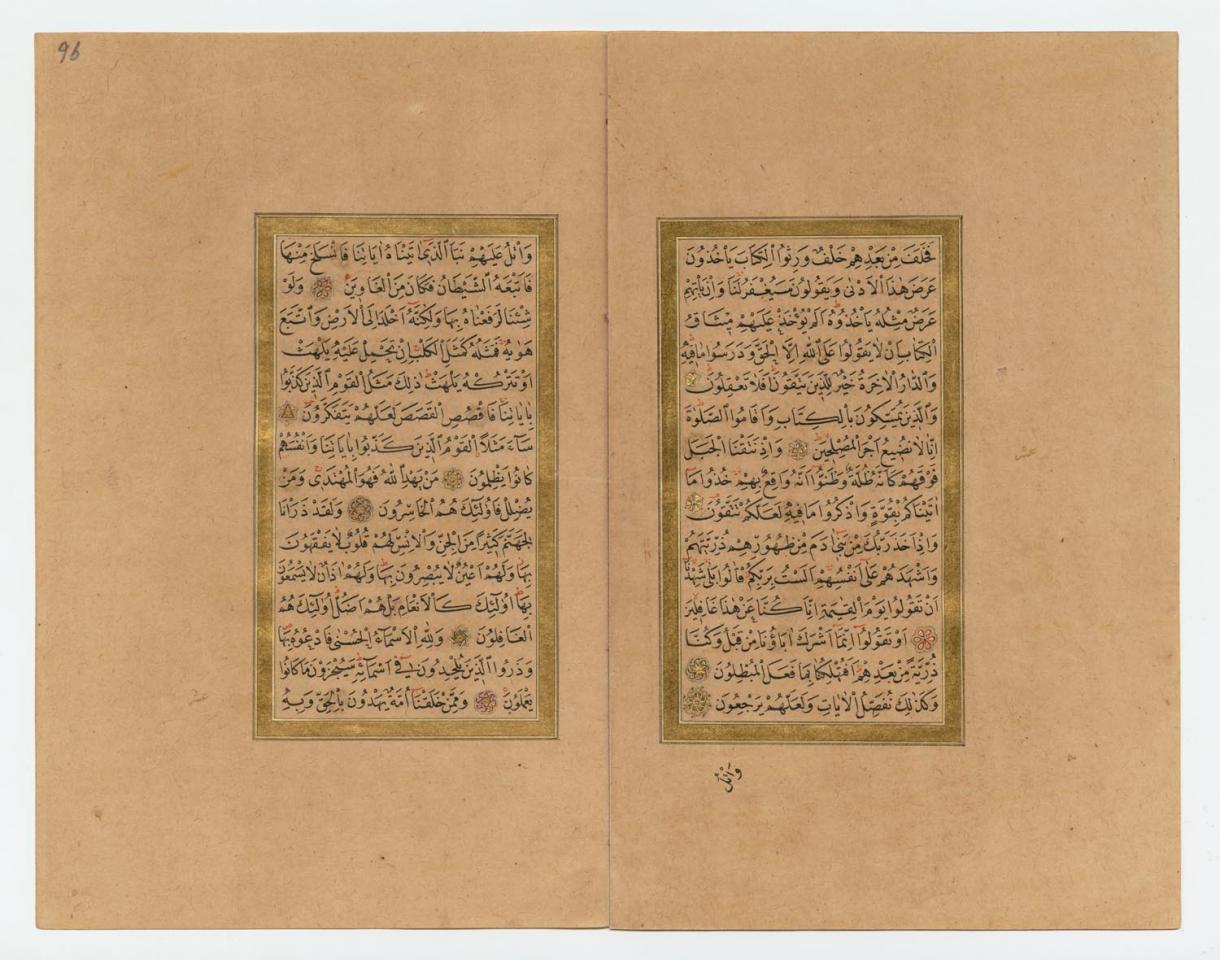 فَخَلَفَ مِنْ بَعْدِهِمْ خَلْفٌ وَرِثُوا الْكِتَابَ يَأْخُذُونَ
عَرَضَ هٰذَا الْاَدْنٰى وَيَقُولُونَ سَيُغْفَرُ لَنَا وَاِنْ يَأْتِهِمْ
عَرَضٌ مِثْلُهُ يَأْخُذُوهُ اَلَمْ يُؤْخَذْ عَلَيْهِمْ مِيثَاقُ
الْكِتَابِ اَنْ لَا يَقُولُوا عَلَى اللّٰهِ اِلَّا الْحَقَّ وَدَرَسُوا مَا فِيهِ
وَالدَّارُ الْاٰخِرَةُ خَيْرٌ لِلَّذِينَ يَتَّقُونَ اَفَلَا تَعْقِلُونَ
وَالَّذِينَ يُمَسِّكُونَ بِالْكِتَابِ وَاَقَامُوا الصَّلٰوةَ
اِنَّا لَا نُضِيعُ اَجْرَ الْمُصْلِحِينَ وَاِذْ نَتَقْنَا الْجَبَلَ
فَوْقَهُمْ كَاَنَّهُ ظُلَّةٌ وَظَنُّوا اَنَّهُ وَاقِعٌ بِهِمْ خُذُوا مَا
اٰتَيْنَاكُمْ بِقُوَّةٍ وَاذْكُرُوا مَا فِيهِ لَعَلَّكُمْ تَتَّقُونَ
وَاِذْ اَخَذَ رَبُّكَ مِنْ بَنِي اٰدَمَ مِنْ ظُهُورِهِمْ ذُرِّيَّتَهُمْ
وَاَشْهَدَهُمْ عَلٰى اَنْفُسِهِمْ اَلَسْتُ بِرَبِّكُمْ قَالُوا بَلٰى شَهِدْنَا
اَنْ تَقُولُوا يَوْمَ الْقِيٰمَةِ اِنَّا كُنَّا عَنْ هٰذَا غَافِلِينَ
اَوْ تَقُولُوا اِنَّمَا اَشْرَكَ اٰبَاؤُنَا مِنْ قَبْلُ وَكُنَّا
ذُرِّيَّةً مِنْ بَعْدِهِمْ اَفَتُهْلِكُنَا بِمَا فَعَلَ الْمُبْطِلُونَ
وَكَذٰلِكَ نُفَصِّلُ الْاٰيَاتِ وَلَعَلَّهُمْ يَرْجِعُونَ
وَاتْلُ
96
وَاتْلُ عَلَيْهِمْ نَبَاَ الَّذِي اٰتَيْنَاهُ اٰيَاتِنَا فَانْسَلَخَ مِنْهَا
فَاَتْبَعَهُ الشَّيْطَانُ فَكَانَ مِنَ الْغَاوِينَ وَلَوْ
شِئْنَا لَرَفَعْنَاهُ بِهَا وَلٰكِنَّهُ اَخْلَدَ اِلَى الْاَرْضِ وَاتَّبَعَ
هَوٰيهُ فَمَثَلُهُ كَمَثَلِ الْكَلْبِ اِنْ تَحْمِلْ عَلَيْهِ يَلْهَثْ
اَوْ تَتْرُكْهُ يَلْهَثْ ذٰلِكَ مَثَلُ الْقَوْمِ الَّذِينَ كَذَّبُوا
بِاٰيَاتِنَا فَاقْصُصِ الْقَصَصَ لَعَلَّهُمْ يَتَفَكَّرُونَ
سَاءَ مَثَلًا اَلْقَوْمُ الَّذِينَ كَذَّبُوا بِاٰيَاتِنَا وَاَنْفُسَهُمْ
كَانُوا يَظْلِمُونَ مَنْ يَهْدِ اللّٰهُ فَهُوَ الْمُهْتَدِي وَمَنْ
يُضْلِلْ فَاُولٰئِكَ هُمُ الْخَاسِرُونَ وَلَقَدْ ذَرَاْنَا
لِجَهَنَّمَ كَثِيرًا مِنَ الْجِنِّ وَالْاِنْسِ لَهُمْ قُلُوبٌ لَا يَفْقَهُونَ
بِهَا وَلَهُمْ اَعْيُنٌ لَا يُبْصِرُونَ بِهَا وَلَهُمْ اٰذَانٌ لَا يَسْمَعُونَ
بِهَا اُولٰئِكَ كَالْاَنْعَامِ بَلْ هُمْ اَضَلُّ اُولٰئِكَ هُمُ
الْغَافِلُونَ وَلِلّٰهِ الْاَسْمَاءُ الْحُسْنٰى فَادْعُوهُ بِهَا
وَذَرُوا الَّذِينَ يُلْحِدُونَ فِي اَسْمَائِهِ سَيُجْزَوْنَ مَا كَانُوا
يَعْمَلُونَ وَمِمَّنْ خَلَقْنَا اُمَّةٌ يَهْدُونَ بِالْحَقِّ وَبِهِ